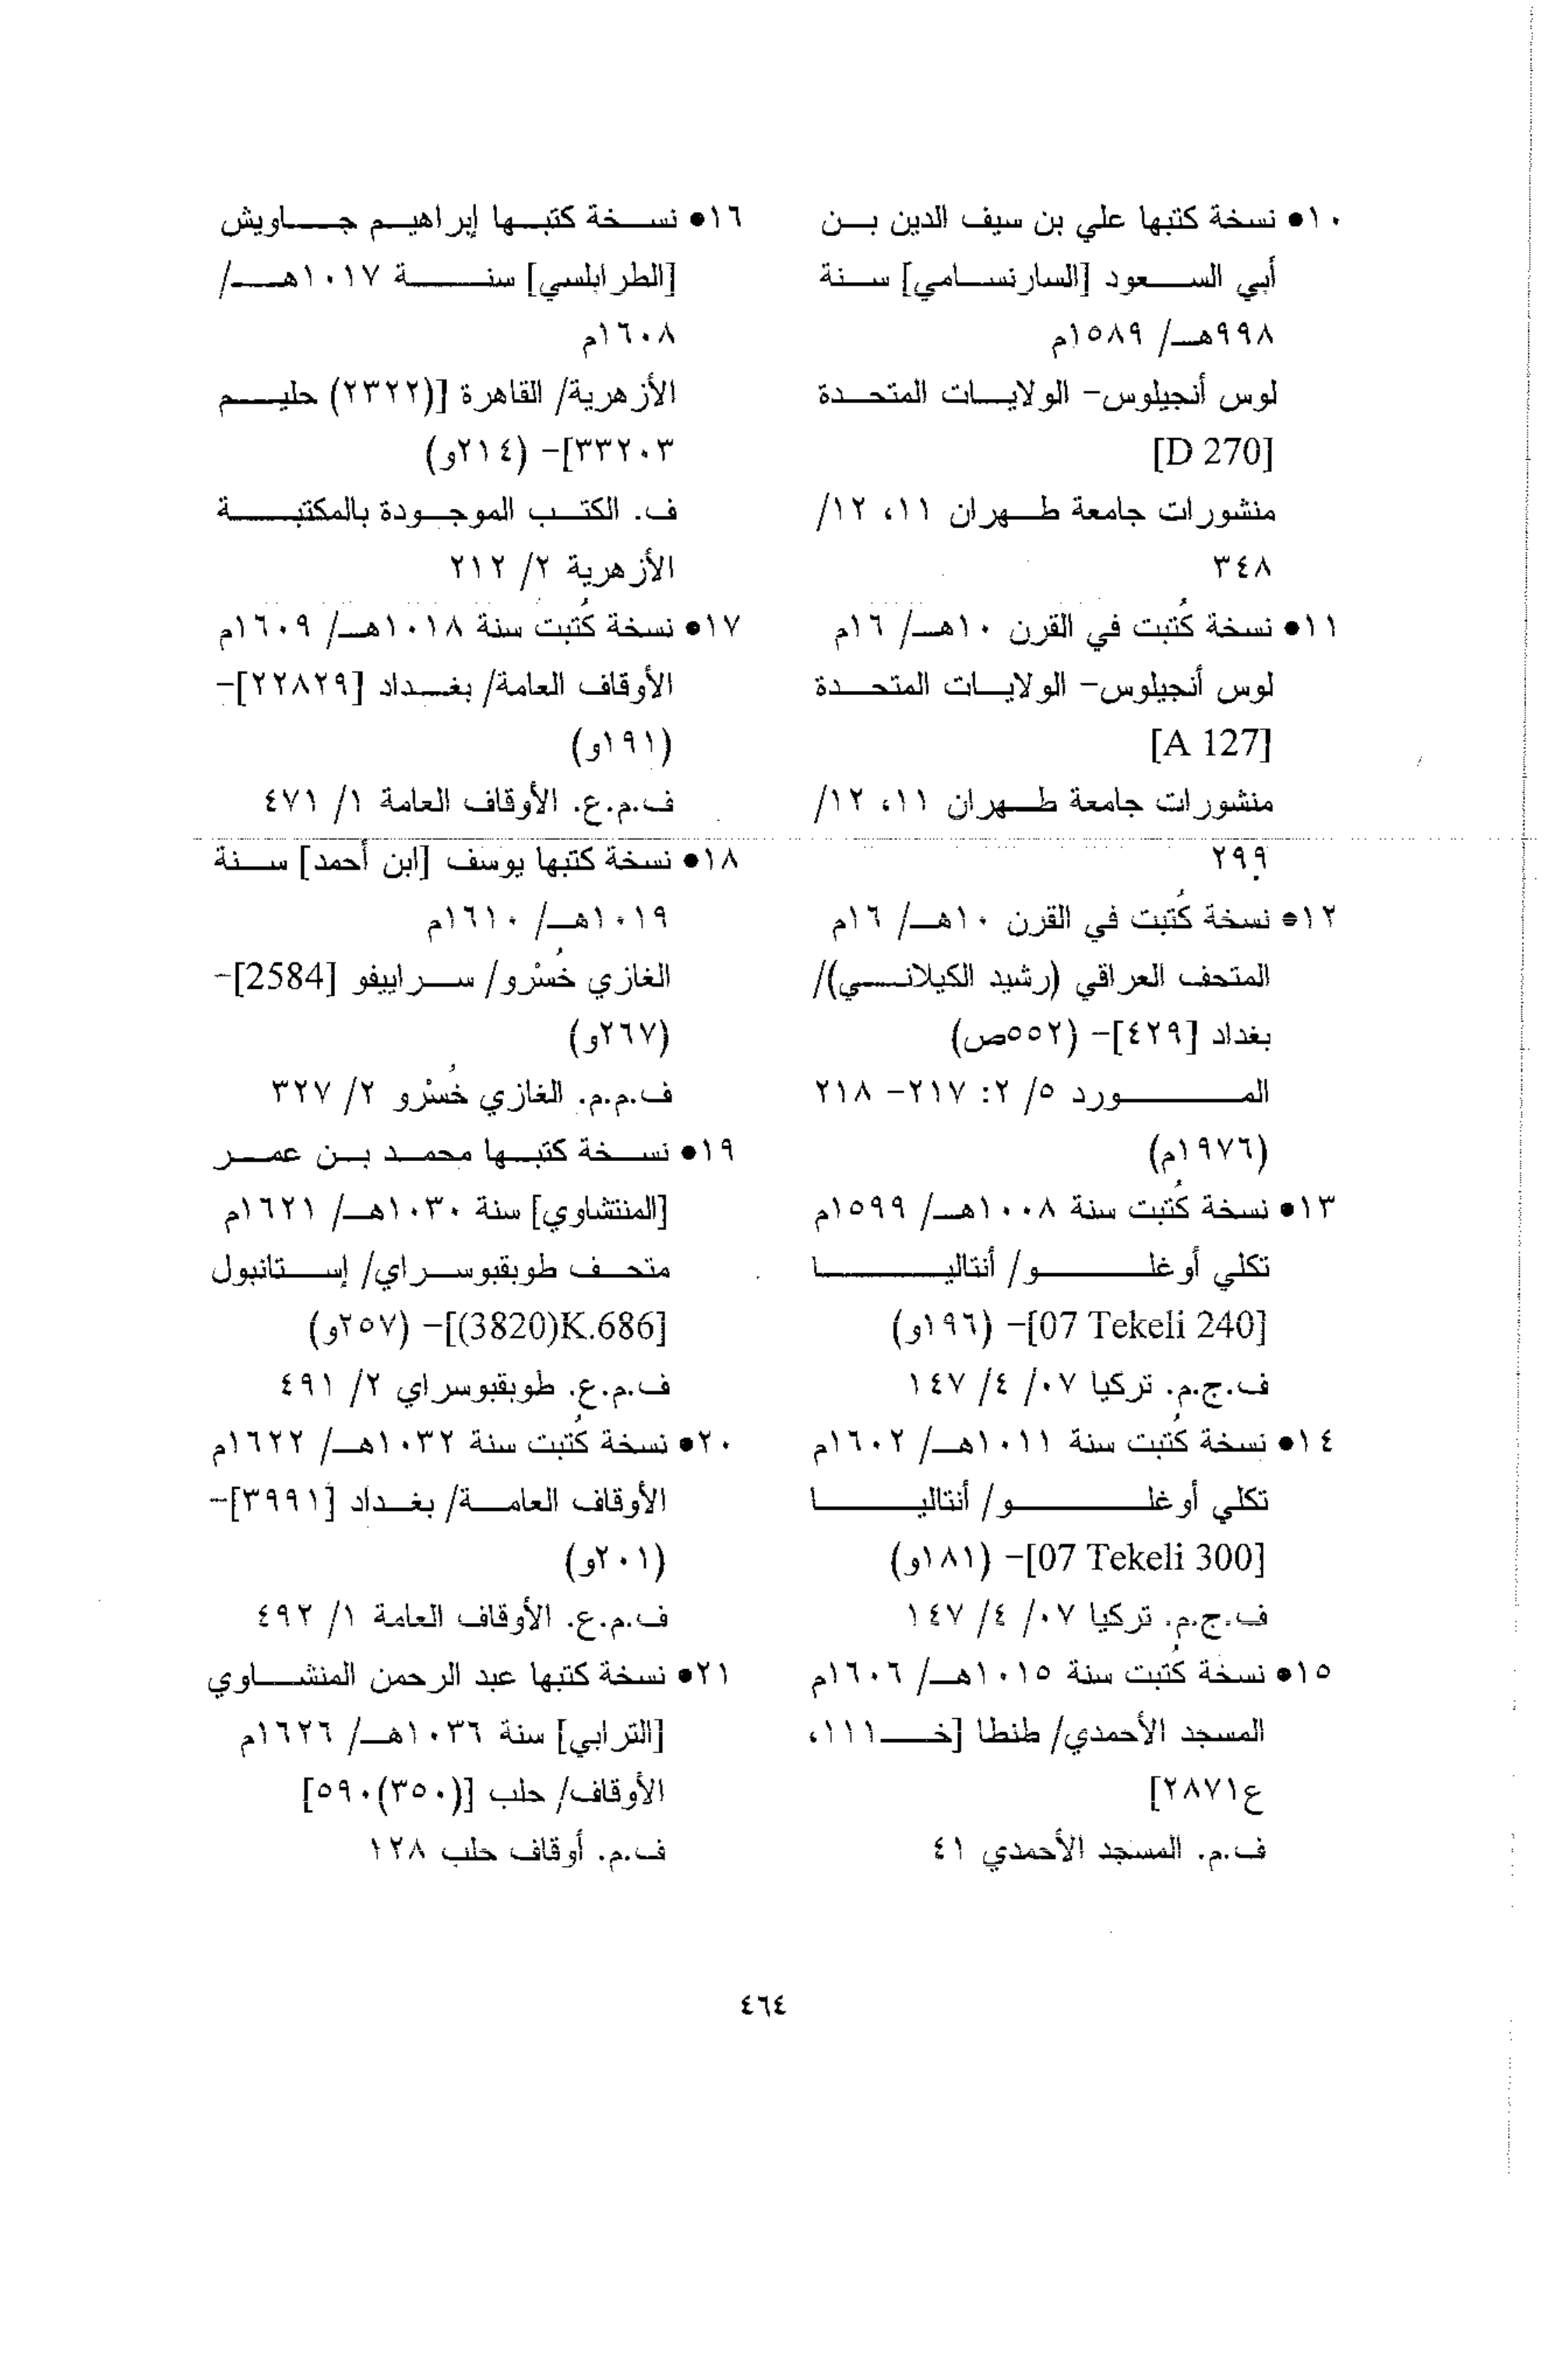 ١٠● نسخة كتبها علي بن سيف الدين بن
أبي السعود [السارنسامي] سنة
٩٩٨هـ/ ١٥٨٩م
لوس أنجيلوس- الولايات المتحدة
[D 270]
منشورات جامعة طهران ١١، ١٢/
٣٤٨
١١● نسخة كُتبت في القرن ١٠هـ/ ١٦م
لوس أنجيلوس- الولايات المتحدة
[A 127]
منشورات جامعة طهران ١١، ١٢/
٢٩٩
١٢● نسخة كُتبت في القرن ١٠هـ/ ١٦م
المتحف العراقي (رشيد الكيلاني)/
بغداد [٤٢٩]- (٥٥٢ص)
المورد ٥/ ٢: ٢١٧- ٢١٨
(١٩٧٦م)
١٣● نسخة كُتبت سنة ١٠٠٨هـ/ ١٥٩٩م
تكلي أوغلو/ أنتاليا
[07 Tekeli 240]- (١٩٦و)
ف.ج.م. تركيا ٠٧/ ٤/ ١٤٧
١٤● نسخة كُتبت سنة ١٠١١هـ/ ١٦٠٢م
تكلي أوغلو/ أنتاليا
[07 Tekeli 300]- (١٨١و)
ف.ج.م. تركيا ٠٧/ ٤/ ١٤٧
١٥● نسخة كُتبت سنة ١٠١٥هـ/ ١٦٠٦م
المسجد الأحمدي/ طنطا [خـ١١١،
ع٢٨٧١]
ف.م. المسجد الأحمدي ٤١
١٦● نسخة كتبها إبراهيم جاويش
[الطرابلسي] سنة ١٠١٧هـ/
١٦٠٨م
الأزهرية/ القاهرة [(٢٣٢٢) حليم
٣٣٢٠٣]- (٢١٤و)
ف. الكتب الموجودة بالمكتبة
الأزهرية ٢/ ٢١٢
١٧● نسخة كُتبت سنة ١٠١٨هـ/ ١٦٠٩م
الأوقاف العامة/ بغداد [٢٢٨٢٩]-
(١٩١و)
ف.م.ع. الأوقاف العامة ١/ ٤٧١
١٨● نسخة كتبها يوسف [ابن أحمد] سنة
١٠١٩هـ/ ١٦١٠م
الغازي خُسْرو/ سراييفو [2584]-
(٢٦٧و)
ف.م.م. الغازي خُسْرو ٢/ ٣٢٧
١٩● نسخة كتبها محمد بن عمر
[المنتشاوي] سنة ١٠٣٠هـ/ ١٦٢١م
متحف طوبقبوسراي/ إستانبول
[(3820)K.686]- (٢٥٧و)
ف.م.ع. طوبقبوسراي ٢/ ٤٩١
٢٠● نسخة كُتبت سنة ١٠٣٢هـ/ ١٦٢٢م
الأوقاف العامة/ بغداد [٣٩٩١]-
(٢٠١و)
ف.م.ع. الأوقاف العامة ١/ ٤٩٢
٢١● نسخة كتبها عبد الرحمن المنشاوي
[الترابي] سنة ١٠٣٦هـ/ ١٦٢٦م
الأوقاف/ حلب [(٣٥٠)٥٩٠]
ف.م. أوقاف حلب ١٢٨
٤٦٤